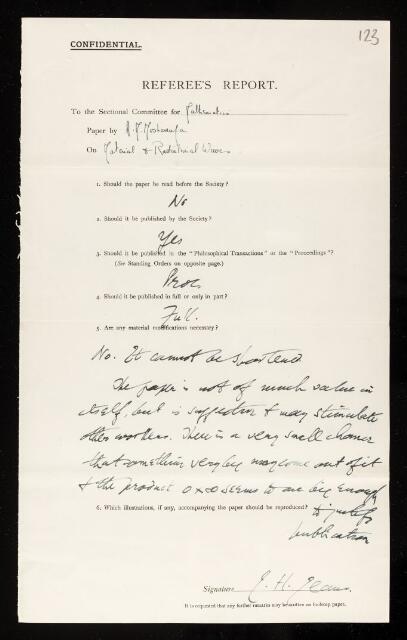 123
CONFIDENTIAL.
REFEREE'S REPORT.
To the Sectional Committee for Mathematics
Paper by A. M. Mosharrafa
On Material & Radiational Waves
1. Should the paper be read before the Society?
No
2. Should it be published by the Society?
Yes
3. Should it be published in the "Philosophical Transactions" or the "Proceedings"?
(See Standing Orders on opposite page.)
Proc
4. Should it be published in full or only in part?
Full.
5. Are any material modifications necessary?
No. It cannot be shortened
The paper is not of much value in
itself, but is suggestive & may stimulate
other workers. There is a very small chance
that something very big may come out of it
& the product 0×∞ seems to me big enough
6. Which illustrations, if any, accompanying the paper should be reproduced? to justify
publication
Signature J. H. Jeans.
It is requested that any further remarks may be written on foolscap paper.